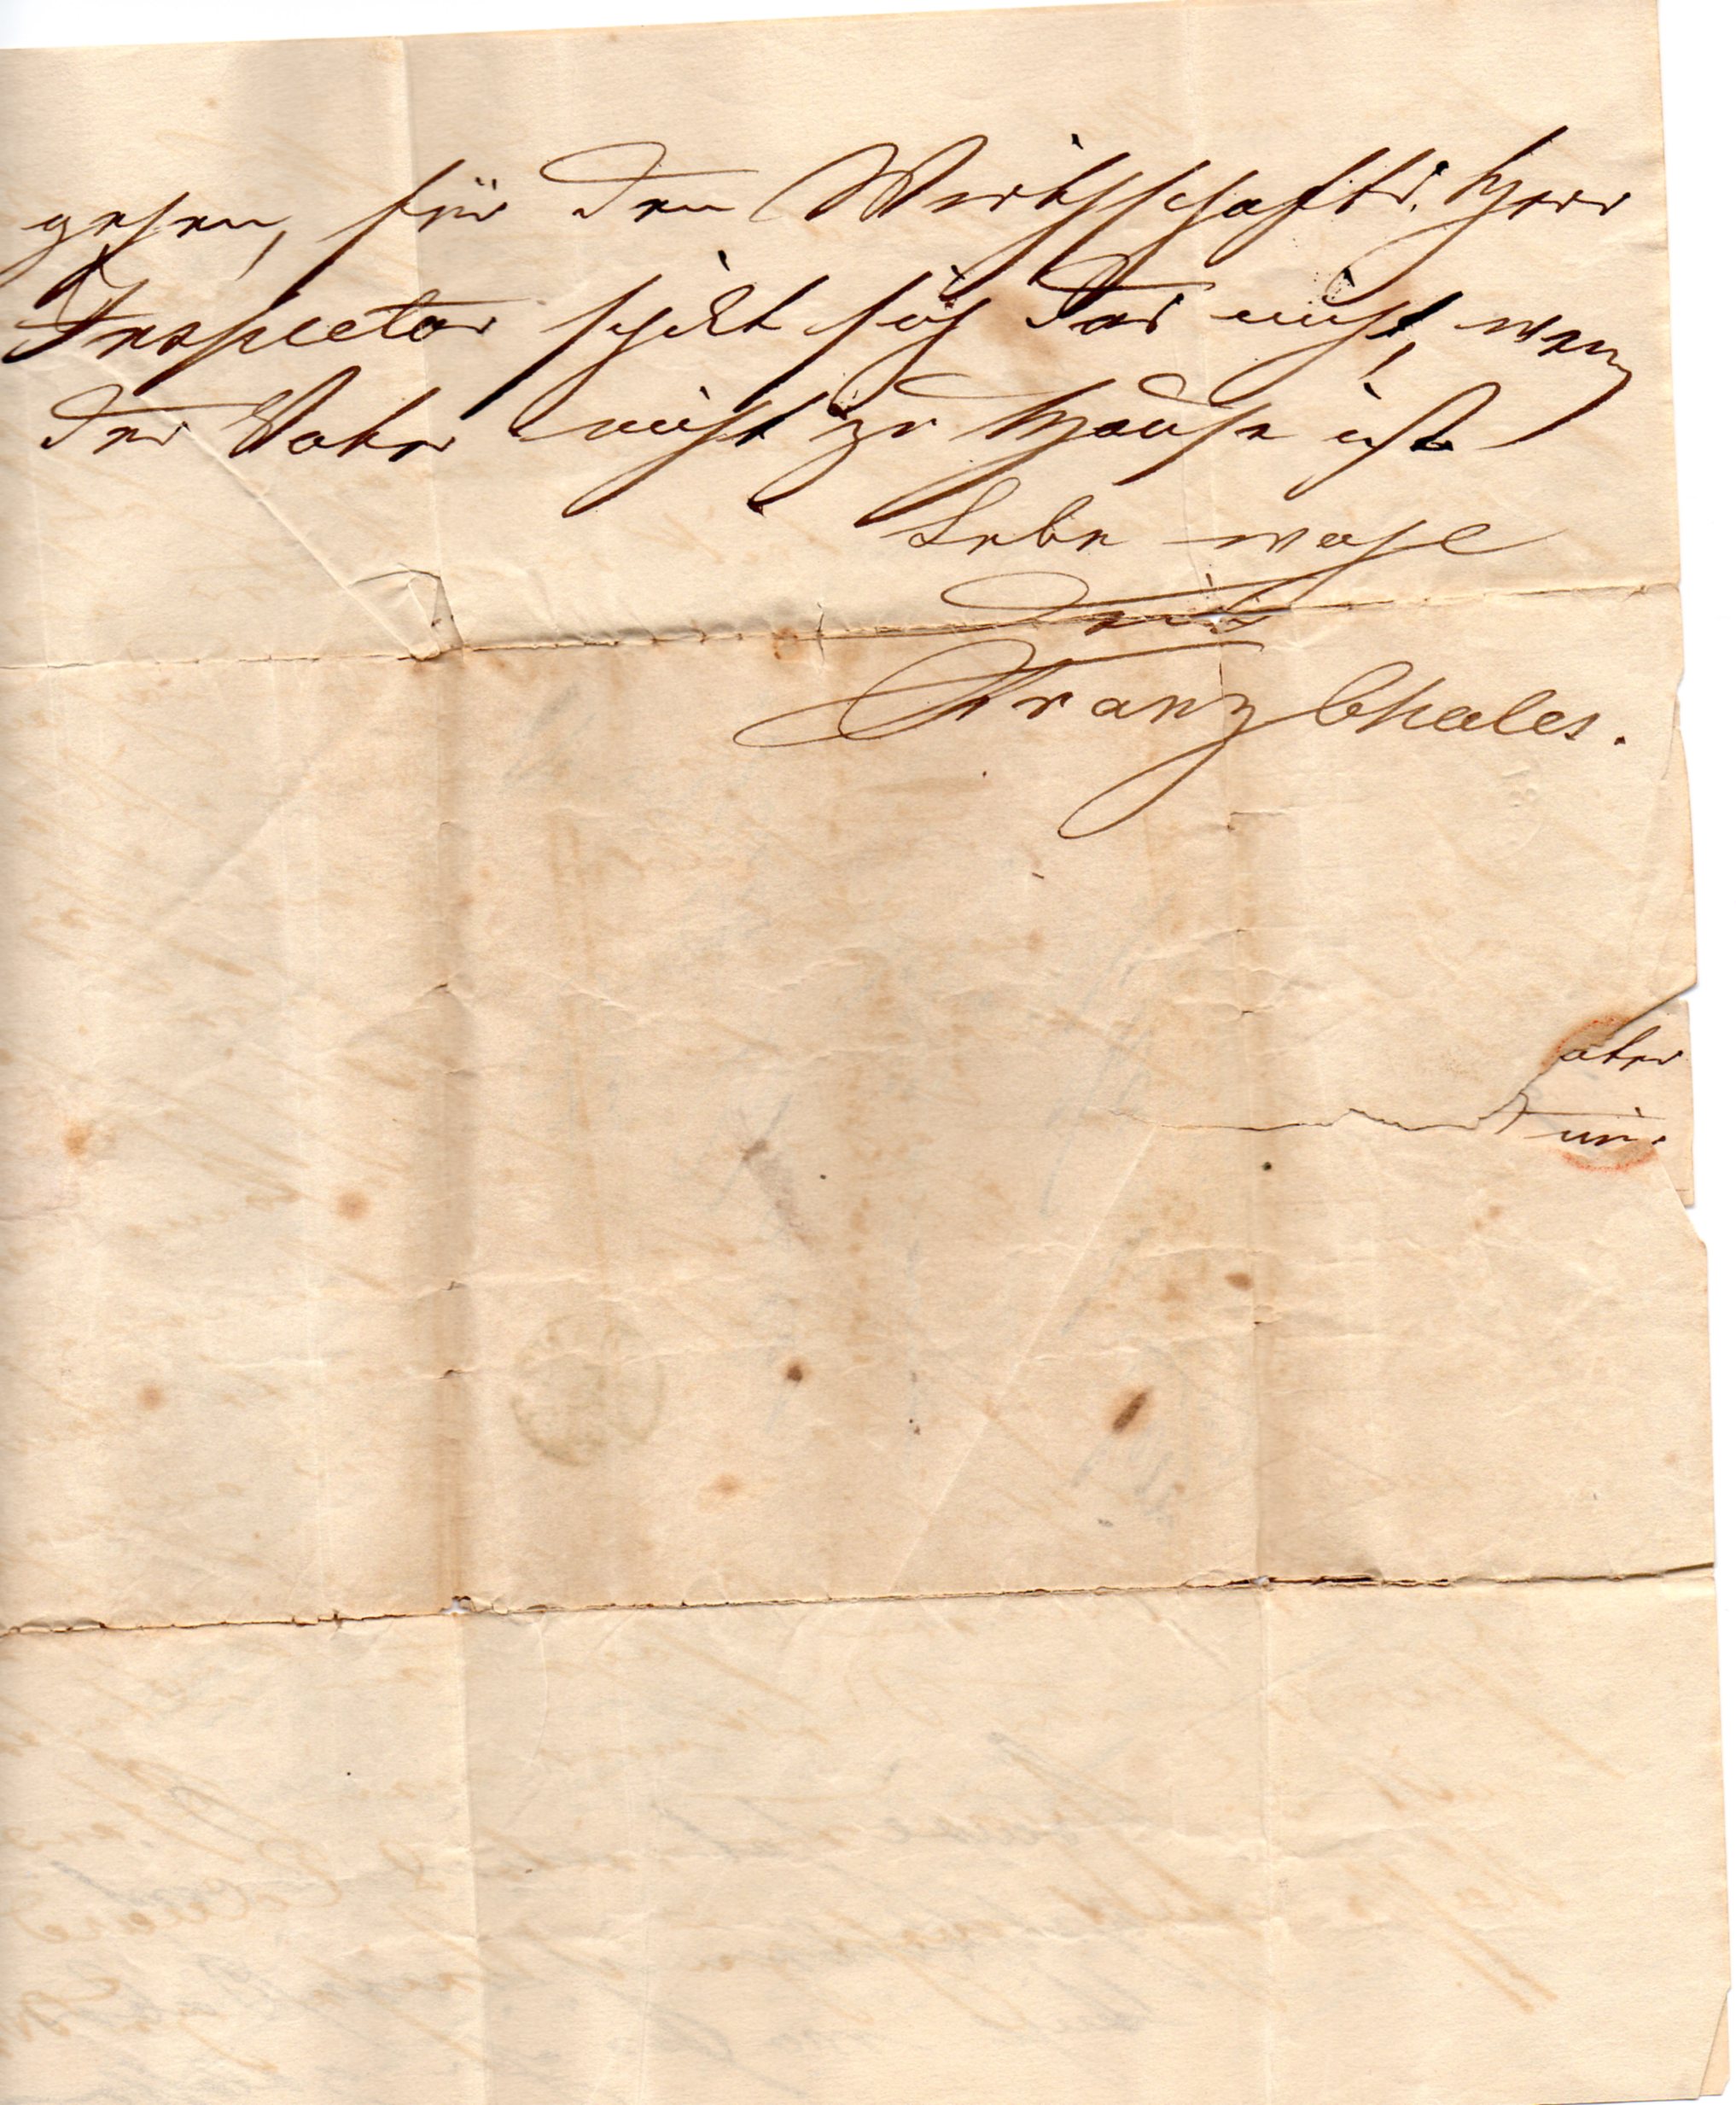 gehen, für den Wirthschafts. Herr
Inspector schikt sich das nicht, wen
der Vater nicht zu Hause ist
Lebe wohl
Dein
Franz
ater